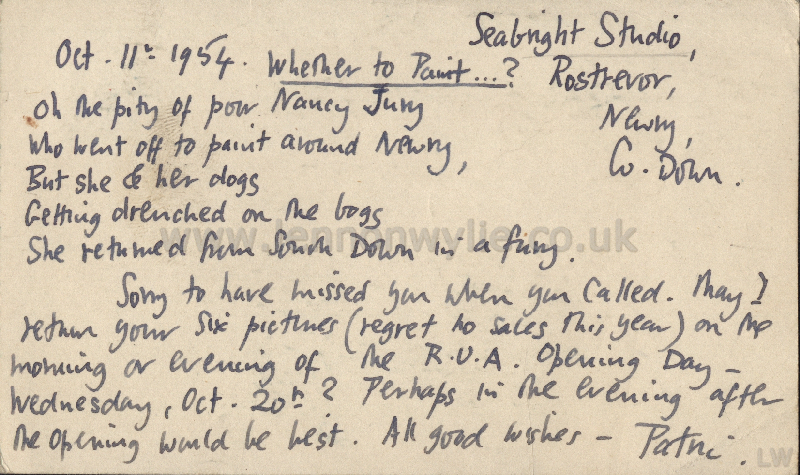 Seabright Studio,
Oct. 11th 1954. Whether to Paint...? Rostrevor,
Oh the pity of poor Nancy Jury
Newry,
Who went off to paint around Newry,
Co. Down.
But she & her dogs
Getting drenched on the bogs
She returned from South Down in a fury.
www.lennonwylie.co.uk
Sorry to have missed you when you called. May I
return your six pictures (regret no sales this year) on the
morning or evening of the R.U.A. Opening Day –
Wednesday, Oct. 20th? Perhaps in the evening after
the Opening would be best. All good wishes –
LW